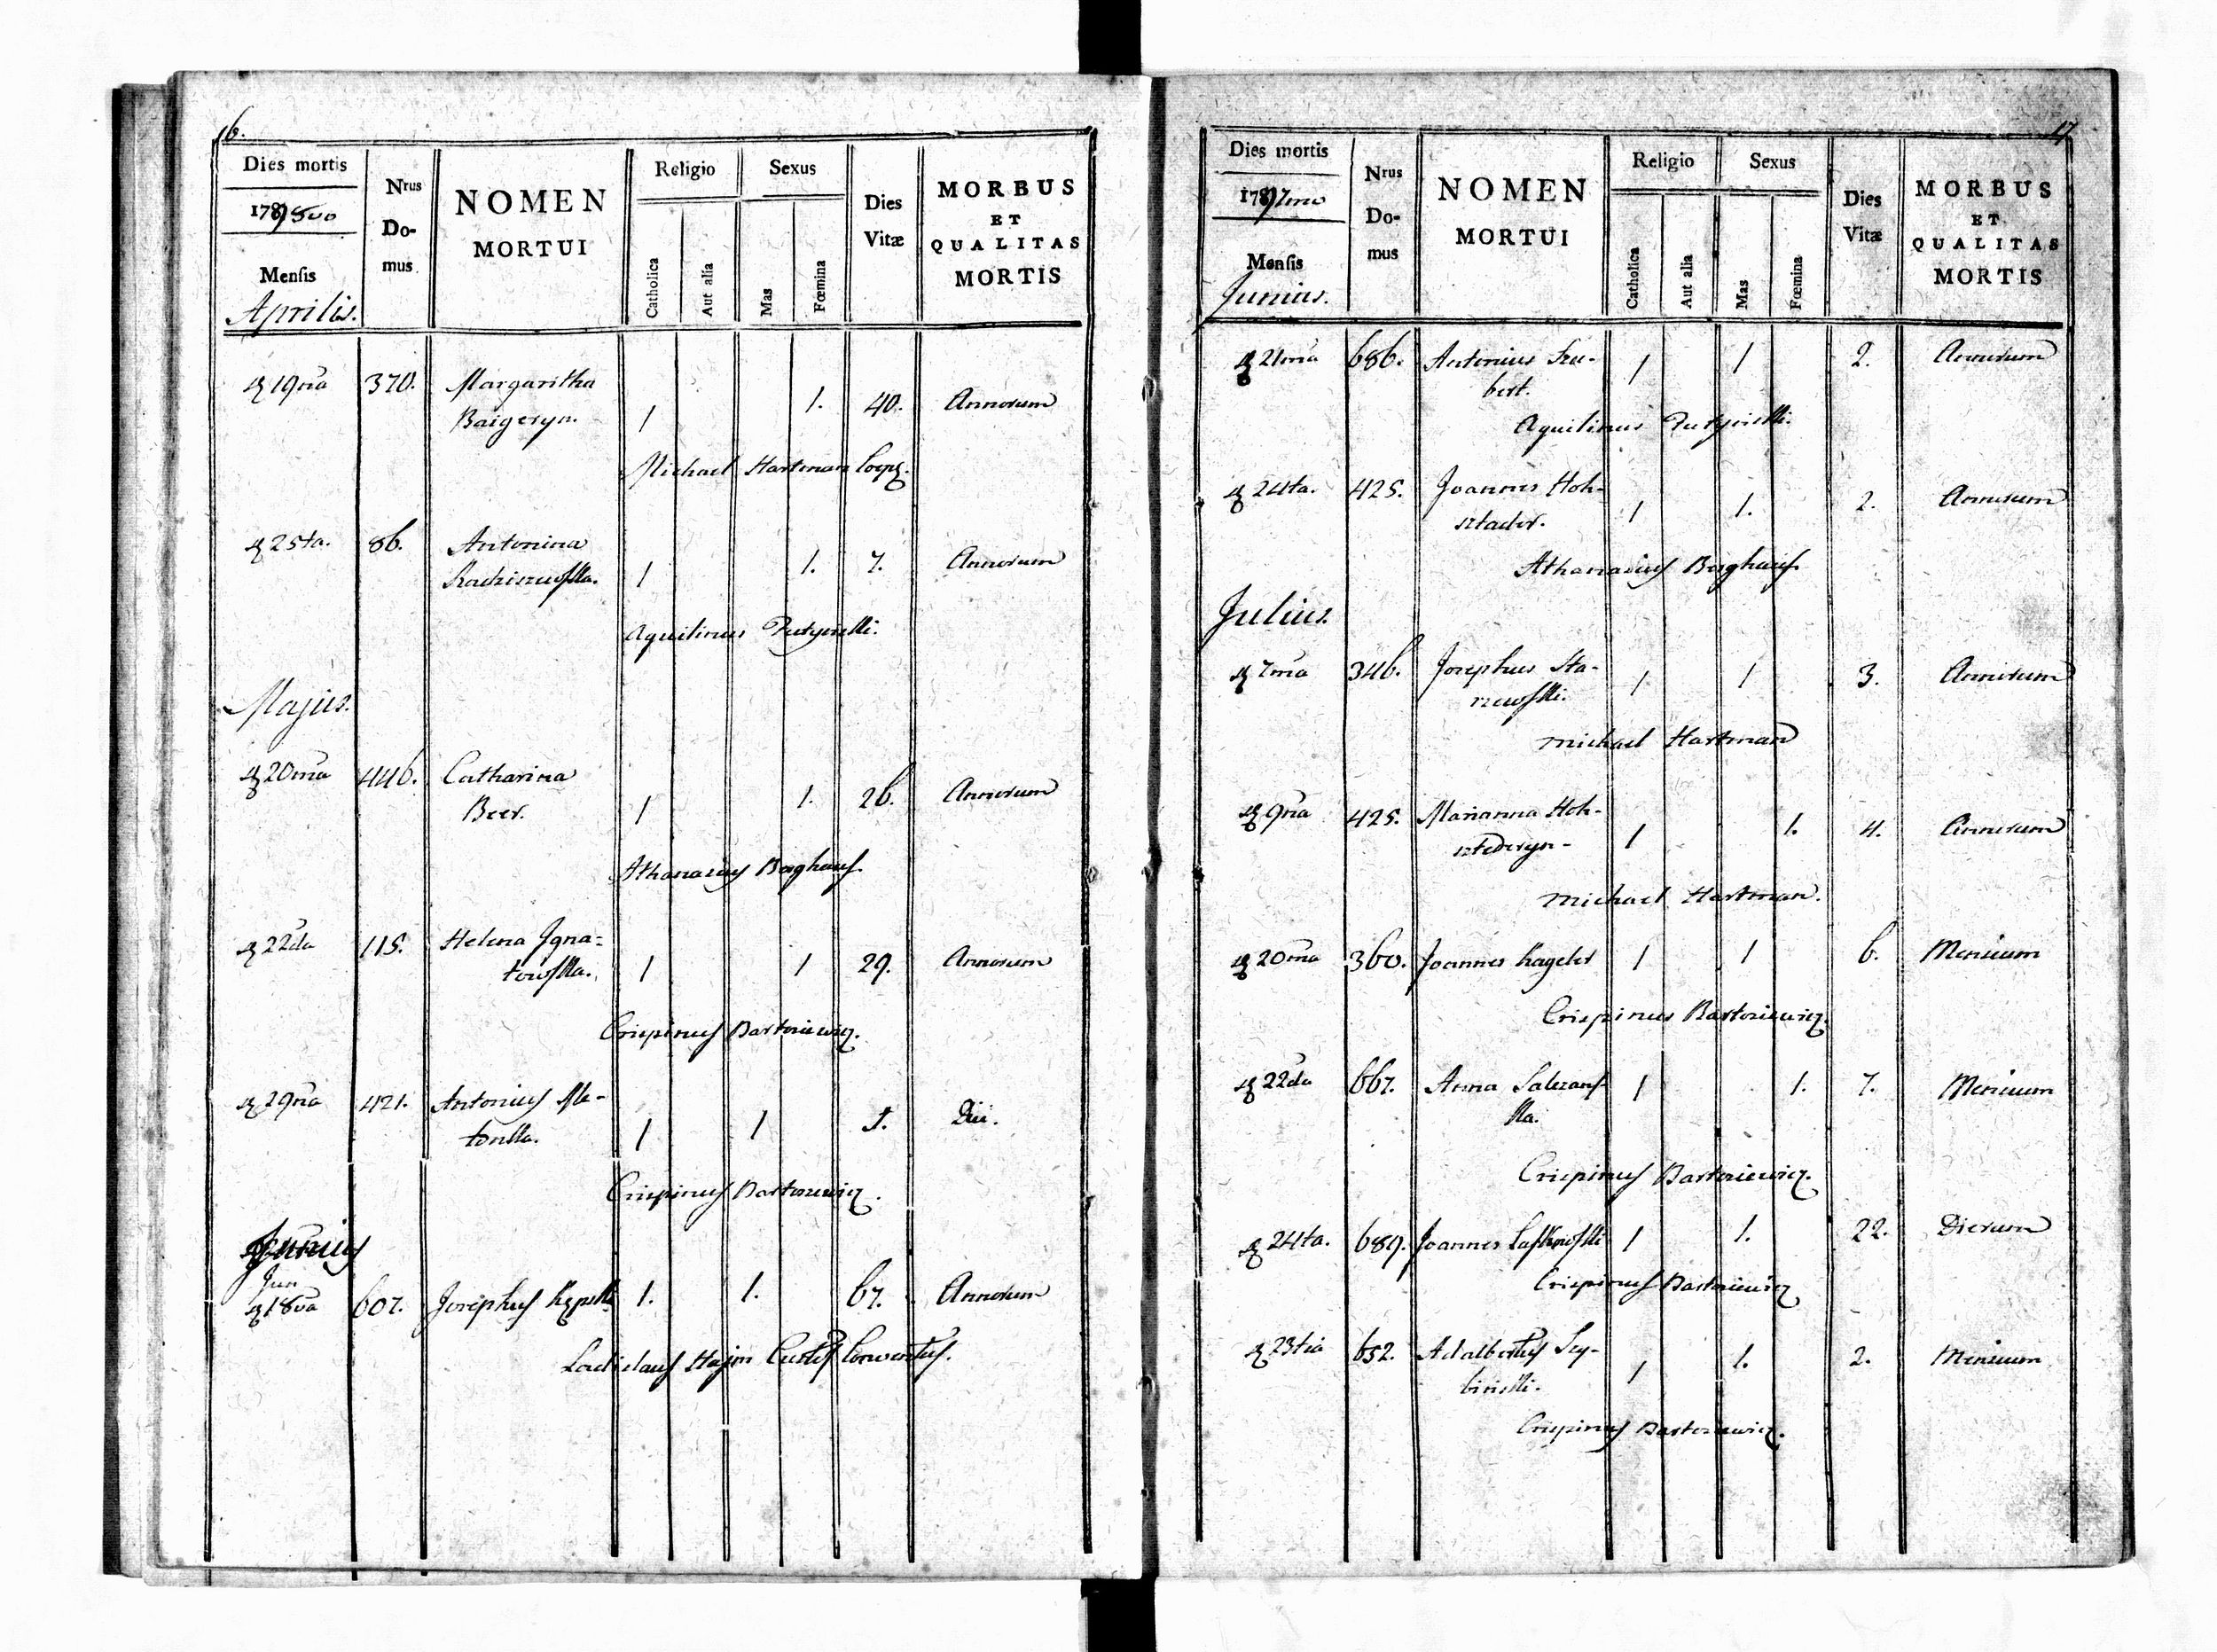 16.
Dies mortis
Nrus Domus
NOMEN MORTUI
Religio
Catholica
Aut alia
Sexus
Mas
Fœmina
Dies Vitæ
MORBUS ET QUALITAS MORTIS
Mensis
Aprilis.
19na 370. Margaritha
Baigeryn. 1 1. 40. Annorum
Michael Hartman
25ta. 86. Antonina
1 1. 7. Annorum
Aquilinus
Majus.
20ma 446. Catharina
Beer. 1 1. 26. Annorum
Athanasius Berghauß.
22da 115. Helena Igna=
towska. 1 1 29. Annorum
Crispinus Bartosiewicz.
29na 421. Antonius
1 1 1. Diei.
Crispinus Bartosiewicz.
Junius
Jun
18va 607. Josephus 1. 1. 67. Annorum
Ladislaus Conventus.
17
Dies mortis
Nrus Domus
NOMEN MORTUI
Religio
Catholica
Aut alia
Sexus
Mas
Fœmina
Dies Vitæ
MORBUS ET QUALITAS MORTIS
Mensis
Junius.
21ma 686. Antonius Szu-
bert. 1 1 2. Annorum
Aquilinus
24ta. 425. Joannes Hoh-
sztader. 1 1. 2. Annorum
Athanasius Berghauß
Julius.
7ma 346. Josephus Sta-
rzewski. 1 1 3. Annorum
Michael Hartman
9na 425. Marianna Hoh-
sztederyn- 1 1. 4. Annorum
Michael Hartman.
20ma 360. Joannes Kageler 1 1 6. Mensium
Crispinus Bartosiewicz.
22da 667. Anna
1 1. 7. Mensium
Crispinus Bartosiewicz.
24ta. 689. Joannes 1 1. 22. Dierum
Crispinus Bartosiewicz
23tia 652. Adalbertus Sey-
1 1. 2. Mensium
Crispinus Bartosiewicz.